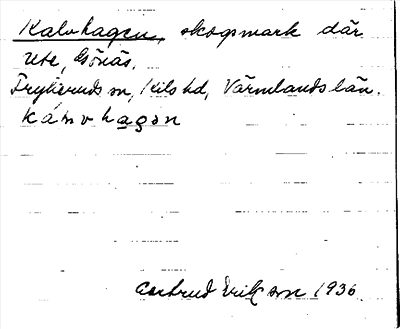 Kalvhagen, skogsmark där
ute, Gönäs.
Frykeruds sn, Kils hd, Värmlands län.
kálvhagən
Gertrud Erikson 1936